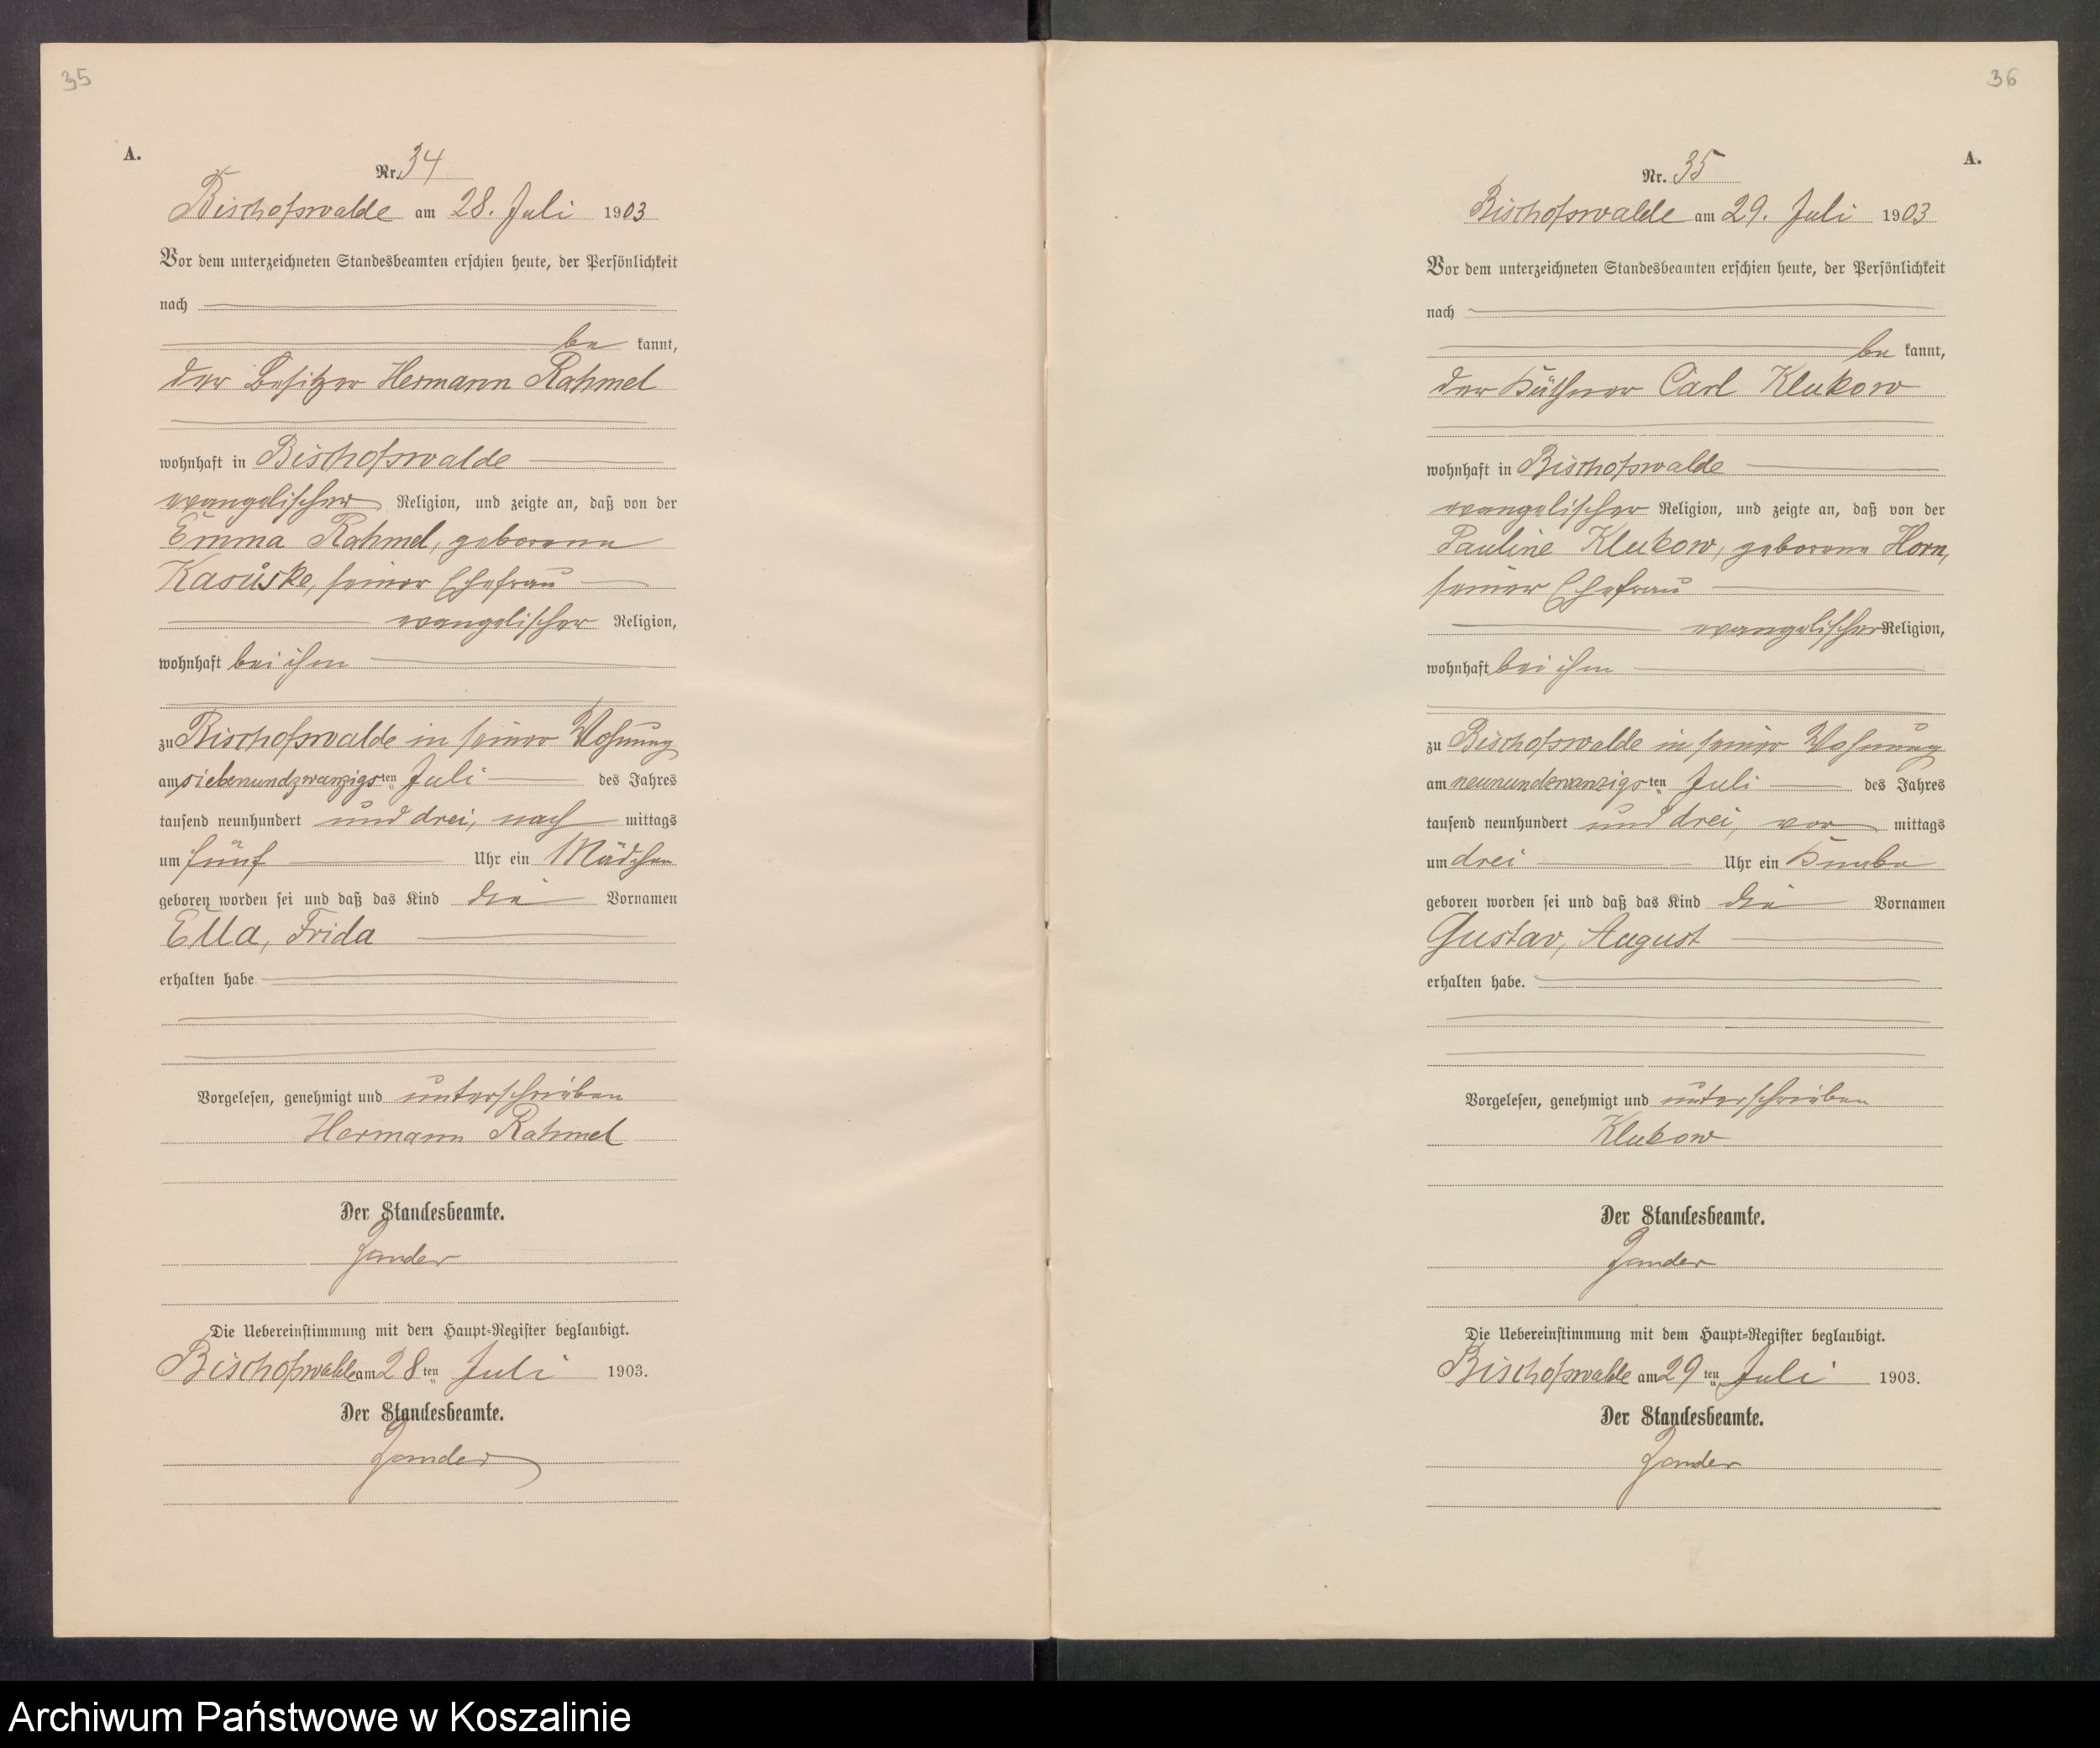 35
A.
Nr. 34
Bischofswalde am 28. Juli 1903
Vor dem unterzeichneten Standesbeamten erschien heute, der Persönlichkeit
nach
be kannt,
der Besitzer Hermann Rahmel
wohnhaft in Bischofswalde
evangelischer Religion, und zeigte an, daß von der
Emma Rahmel, geborene
Kasüske, seiner Ehefrau
evangelischer Religion,
wohnhaft bei ihm
zu Bischofswalde in seiner Wohnung
am siebenundzwanzigsten Juli des Jahres
tausend neunhundert und drei, nach mittags
um fünf Uhr ein Mädchen
geboren worden sei und daß das Kind die Vornamen
Ella, Frida
erhalten habe
Vorgelesen, genehmigt und unterschrieben
Hermann Rahmel
Der Standesbeamte.
Zander
Die Uebereinstimmung mit dem Haupt-Register beglaubigt.
Bischofswalde am 28ten Juli 1903.
Der Standesbeamte.
Zander
36
A.
Nr. 35
Bischofswalde am 29. Juli 1903
Vor dem unterzeichneten Standesbeamten erschien heute, der Persönlichkeit
nach
be kannt,
der Käthner Carl Klukow
wohnhaft in Bischofswalde
evangelischer Religion, und zeigte an, daß von der
Pauline Klukow, geborene Horn,
seiner Ehefrau
evangelischer Religion,
wohnhaft bei ihm
zu Bischofswalde in seiner Wohnung
am neunundzwanzigsten Juli des Jahres
tausend neunhundert und drei, vor mittags
um drei Uhr ein Knabe
geboren worden sei und daß das Kind die Vornamen
Gustav, August
erhalten habe.
Vorgelesen, genehmigt und unterschrieben
Klukow
Der Standesbeamte.
Zander
Die Uebereinstimmung mit dem Haupt-Register beglaubigt.
Bischofswalde am 29ten Juli 1903.
Der Standesbeamte.
Zander
Archiwum Państwowe w Koszalinie